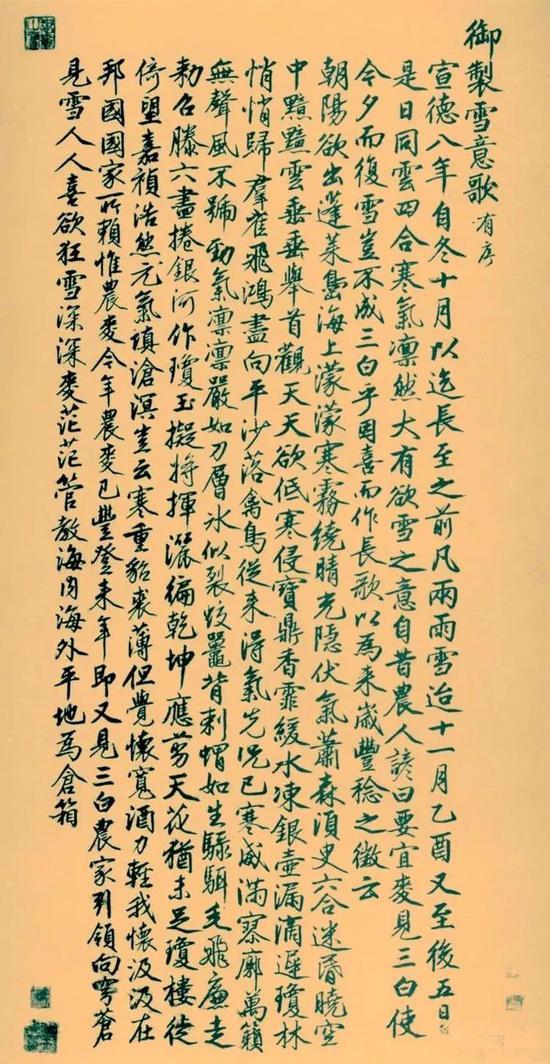 御製雪意歌 有序
宣德八年自冬十月以迄長至之前凡兩雨雪迨十一月乙酉又至後五日也
是日同雲四合寒氣凛然大有欲雪之意自昔農人諺曰要宜麥見三白使
今夕而復雪豈不成三白乎因喜而作長歌以為来歲豐稔之徵云
朝陽欲出蓬莱島海上濛濛寒霧繞晴光隠伏氣蕭森須臾六合迷昏曉空
中黯黯雲垂垂舉首觀天天欲低寒侵寶鼎香霏緩水凍銀壺漏滴遲瓊林
悄悄歸羣雀飛鴻盡向平沙落禽鳥從来得氣先况已寒威滿寥廓萬籟
無聲風不號勁氣凛凛嚴如刀層氷似裂蛟鼉背刺蝟如生騄駬毛飛廉走
勅召滕六盡捲銀河作瓊玉擬將揮灑徧乾坤應剪天花猶未足瓊樓徙
倚望嘉禎浩然元氣填滄溟豈云寒重貂裘薄但覺懷寬酒力輕我懷汲汲在
邦國國家所賴惟農麥今年農麥已豐登来年即又見三白農家引領向穹蒼
見雪人人喜欲狂雪深深麥茫茫管教海内海外平地為倉箱